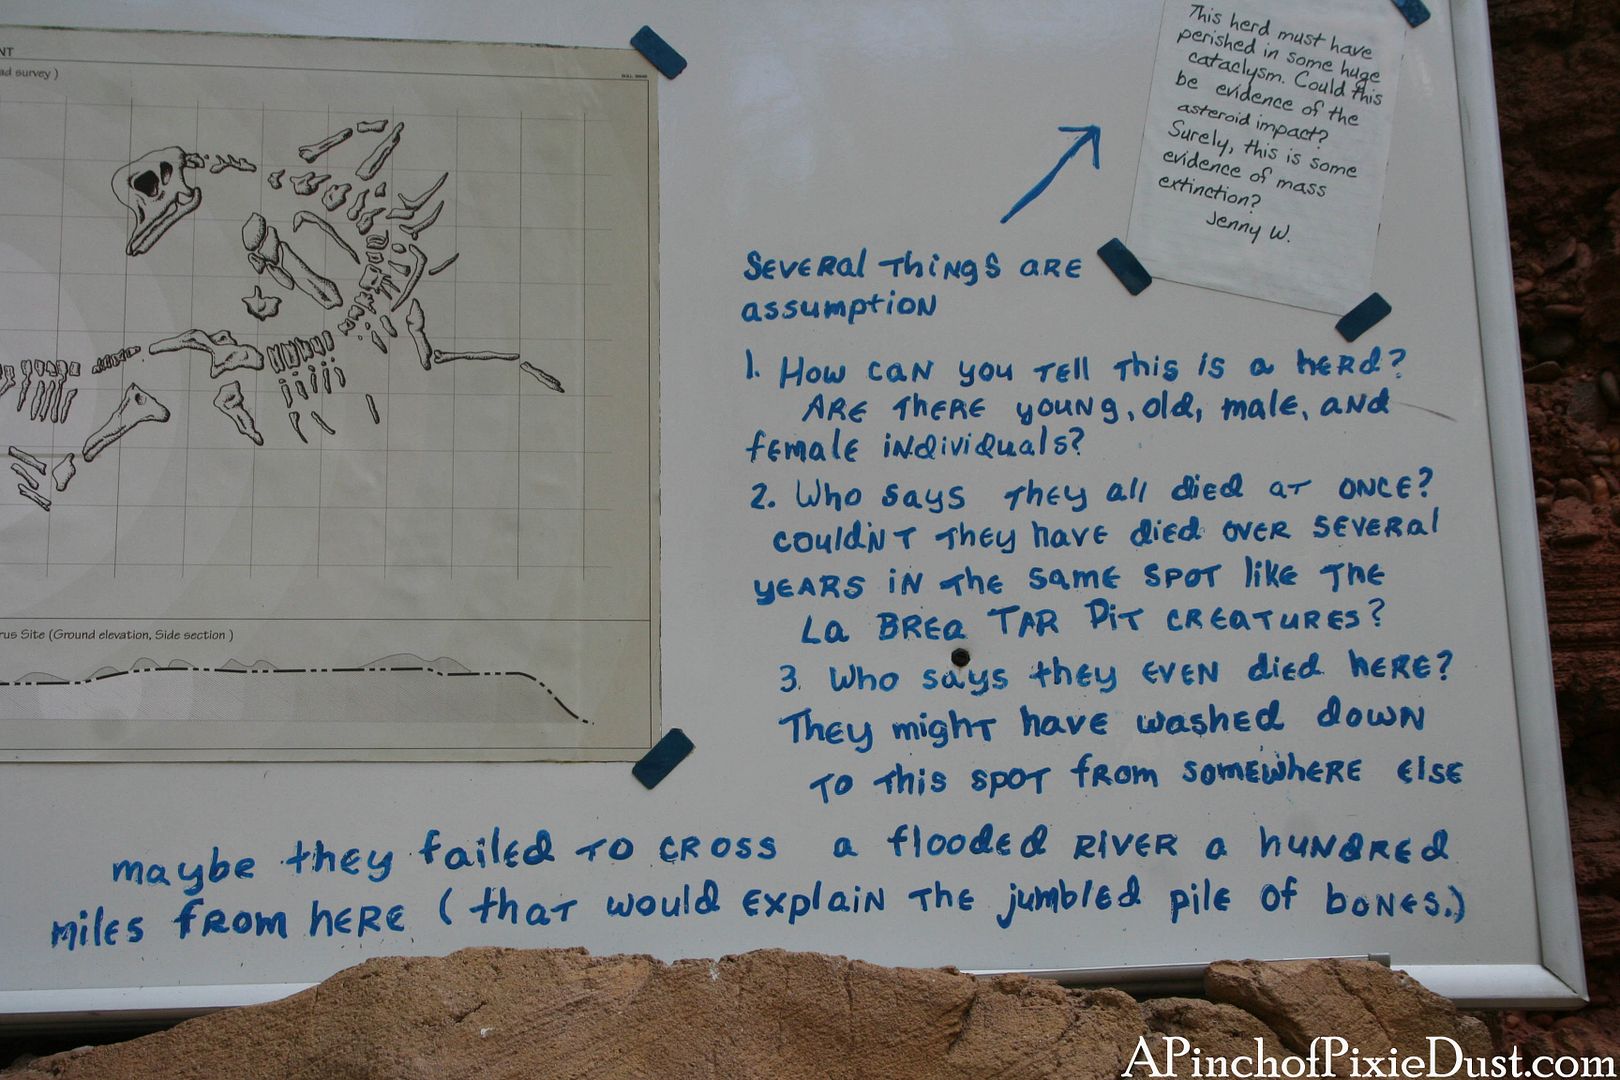 NT
ad survey )
This herd must have
perished in some huge
cataclysm. Could this
be evidence of the
asteroid impact?
Surely, this is some
evidence of mass
extinction?
Jenny W.
Several things are
assumption
1. How can you tell this is a herd?
Are there young, old, male, and
female individuals?
2. Who says they all died at once?
couldn't they have died over several
years in the same spot like the
La Brea Tar Pit creatures?
3. Who says they even died here?
They might have washed down
to this spot from somewhere else
maybe they failed to cross a flooded river a hundred
miles from here (that would explain the jumbled pile of bones.)
rus Site (Ground elevation, Side section )
APinchofPixieDust.com